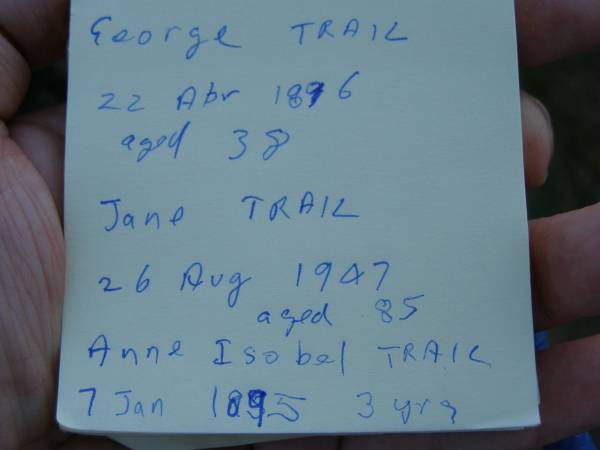 George TRAIL
22 Apr 1896
aged 38
Jane TRAIL
26 Aug 1947
aged 85
Anne Isobel TRAIL
7 Jan 1895 3 yrs